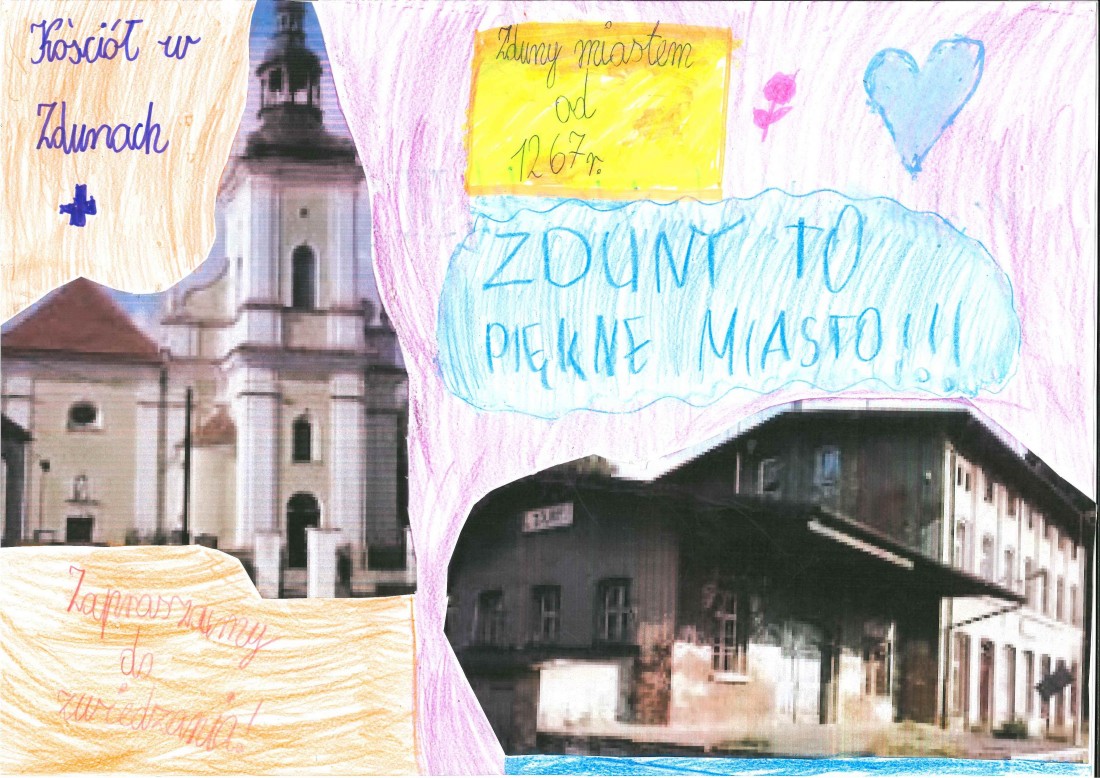 Kościół w
Zdunach
Zduny miastem
od
1267r.
ZDUNY TO
PIĘKNE MIASTO!!!
Zapraszamy
do
zwiedzania!